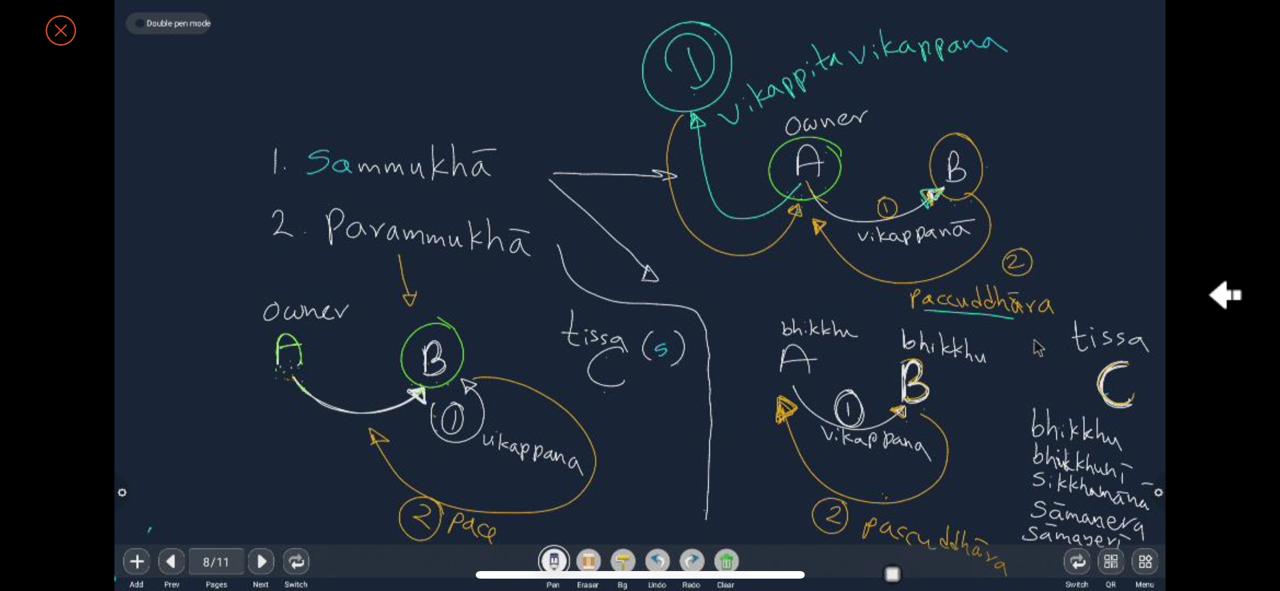 Double pen mode
1
vikappita vikappana
owner
A
B
1
vikappanā
2
paccuddhāra
1. Sammukhā
2. Parammukhā
owner
A
B
1
vikappana
2 pacc
tissa (5)
C
bhikkhu
A
bhikkhu
B
1
vikappana
2 paccuddhāra
tissa
C
bhikkhu
bhikkhunī
sikkhamānā
sāmanera
sāmanerī
Add
Prev
8/11
Pages
Next
Switch
Pen
Eraser
Bg
Undo
Redo
Clear
Switch
QR
Menu